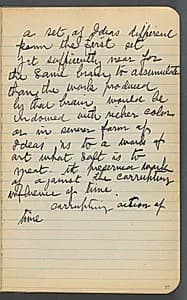 a set of Ideas different
from the first set
Yet sufficiently near for
the same brain to assimilate
than the work produced
by that brain, would be
endowed with richer color
or in severer form of
Ideas is to a work of
art what salt is to
meat. it preserves
against the corrupting
influence of time.
corrupting action of
time